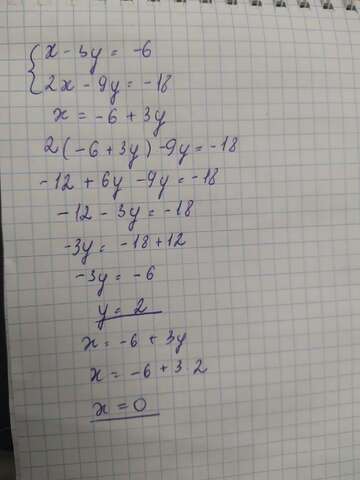 x - 3y = -6
2x - 9y = -18
x = -6 + 3y
2(-6 + 3y) - 9y = -18
-12 + 6y - 9y = -18
-12 - 3y = -18
-3y = -18 + 12
-3y = -6
y = 2
x = -6 + 3y
x = -6 + 3 2
x = 0